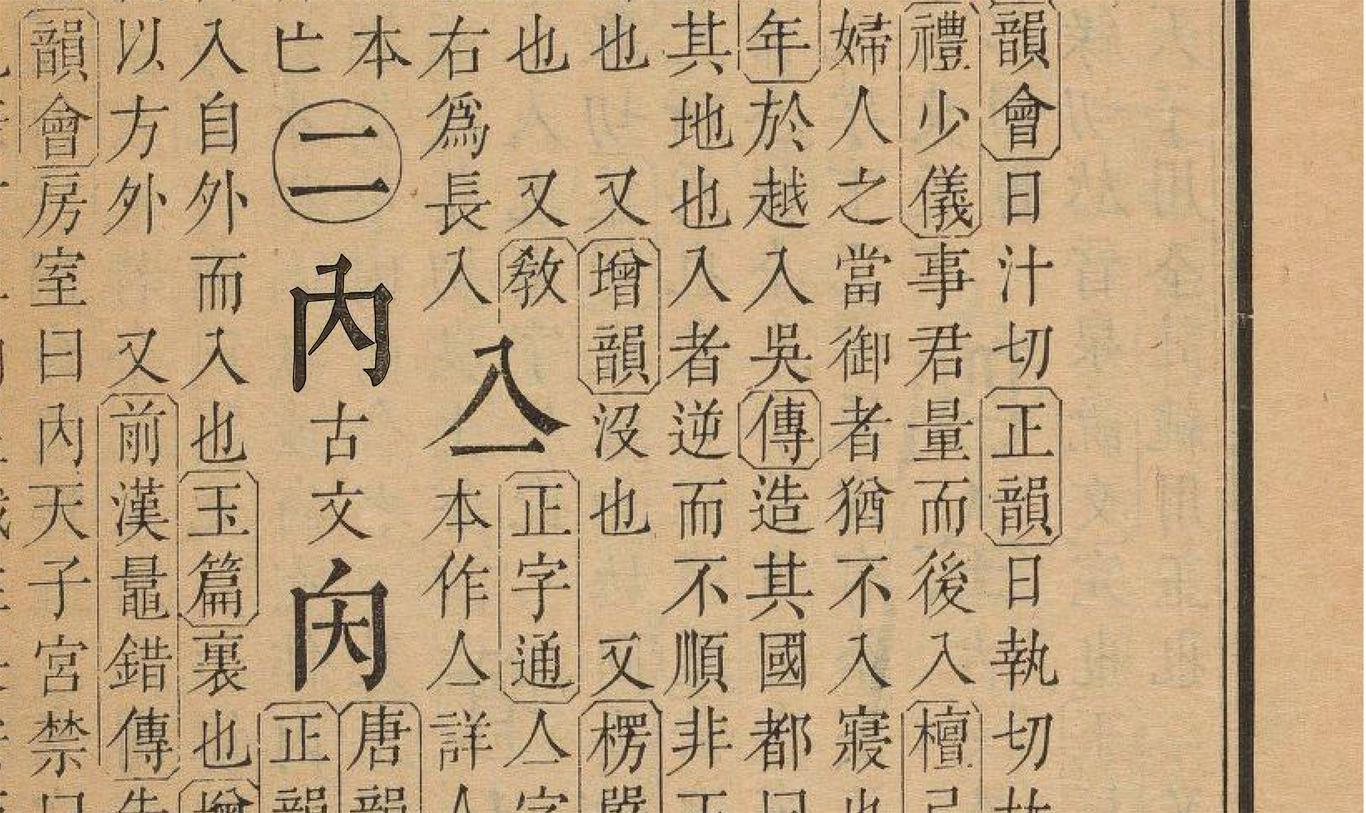 韻會日汁切正韻日執切
禮少儀事君量而後入檀弓
婦人之當御者猶不入寢也
年於越入吳傳造其國都曰
其地也入者逆而不順非王
也 又增韻沒也 又楞嚴
也 又敎
右爲長入
亼
正字通亼字
本作亼詳亼
本
亡
二
內
古文
唐韻
正韻
入自外而入也玉篇裏也增
以方外 又前漢鼂錯傳先
韻會房室曰內天子宮禁曰